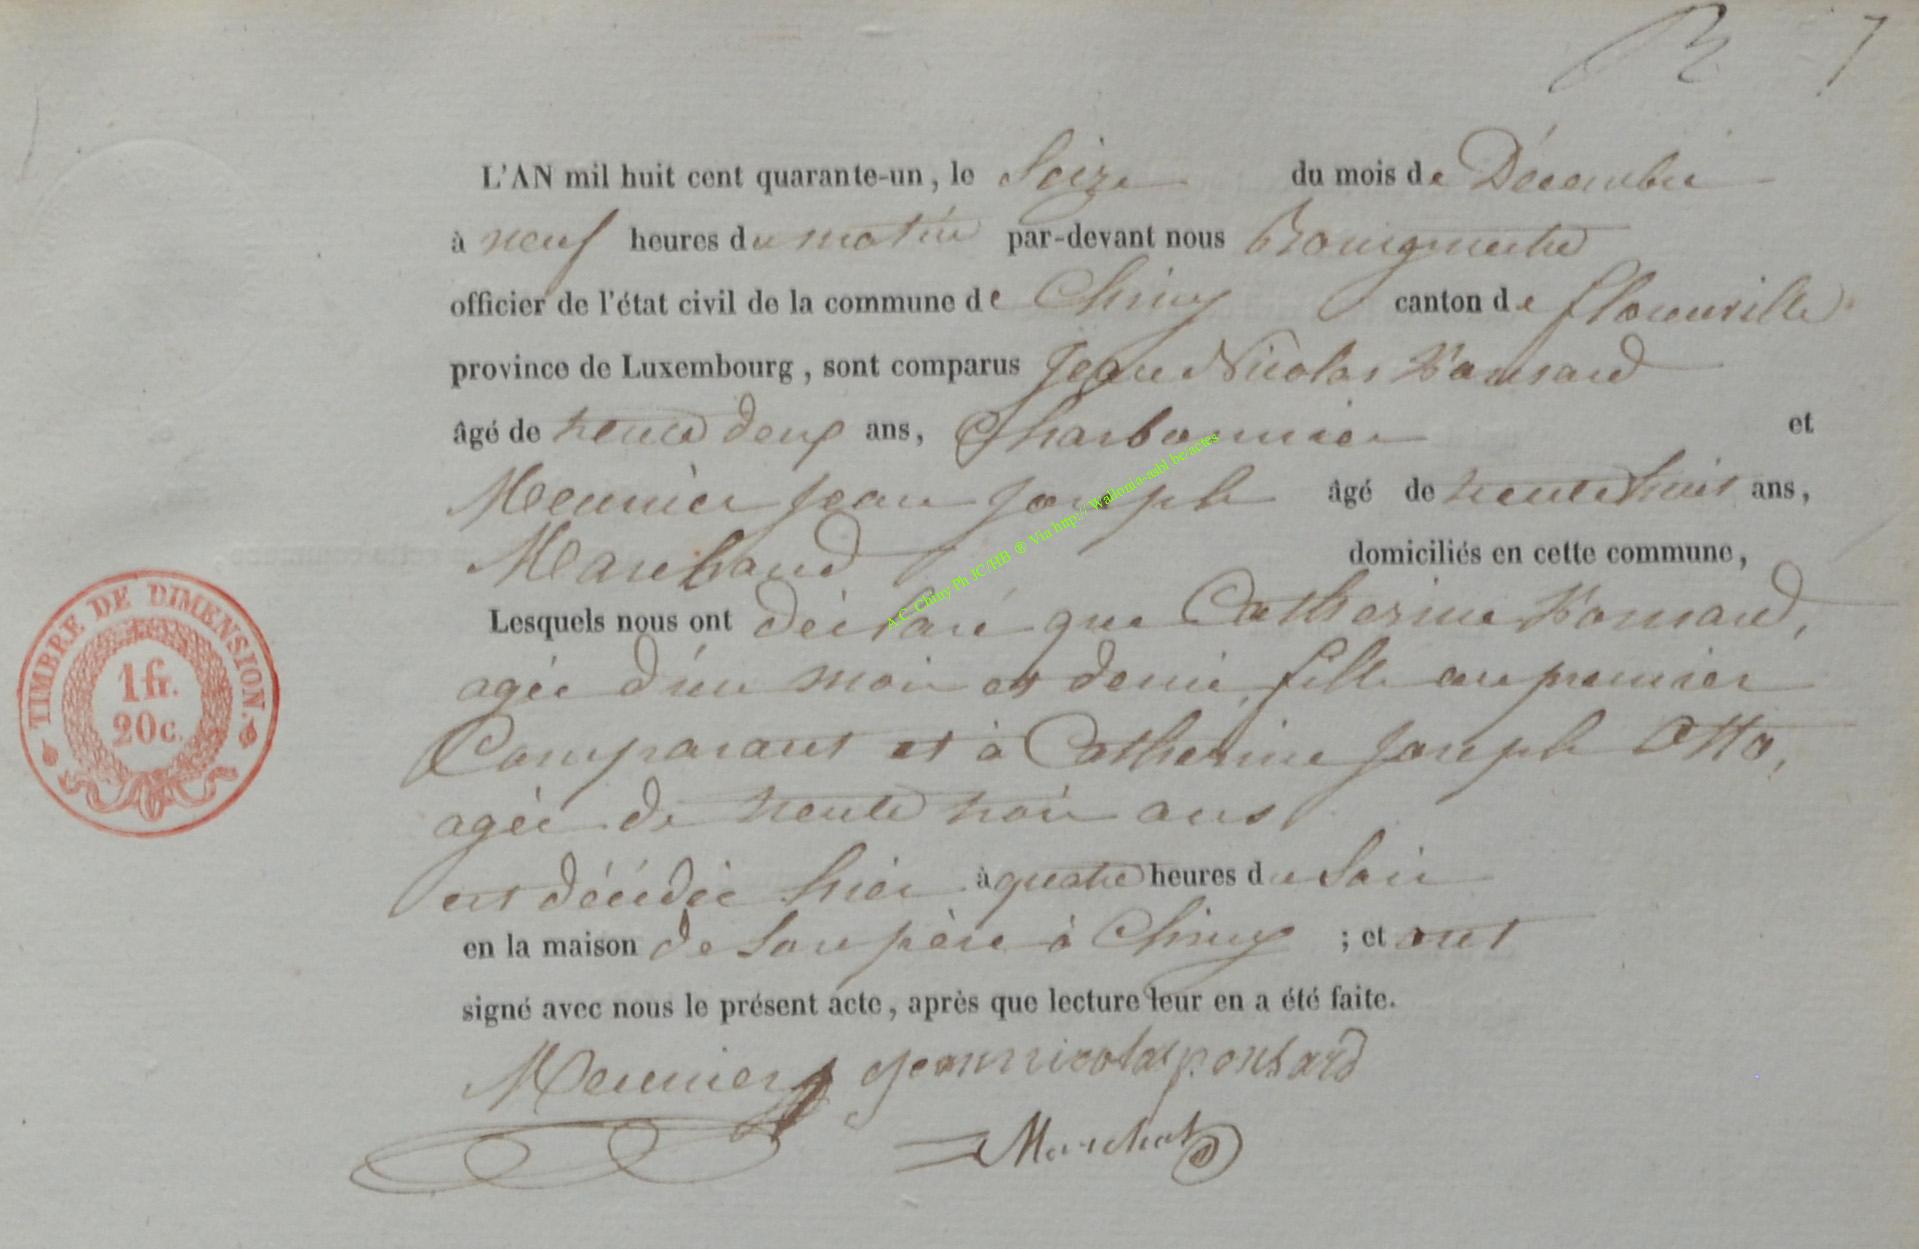 7
L'AN mil huit cent quarante-un, le Seize du mois de Décembre
à neuf heures du matin par-devant nous Bourgmestre
officier de l'état civil de la commune de Chiny canton de florenville
province de Luxembourg, sont comparus Jean Nicolas Ponsard
âgé de trente deux ans, Charbonnier et
Meunier Jean Joseph âgé de trente huit ans,
Marchand domiciliés en cette commune,
Lesquels nous ont déclaré que Catherine Ponsard,
agée d'un mois et demi, fille au premier
Comparant et à Catherine Joseph Otto,
agée de trente trois ans
est décédée hier à quatre heures du Soir
en la maison de Son père à Chiny ; et ont
signé avec nous le présent acte, après que lecture leur en a été faite.
Meunier jean nicolas ponsard
Marchat
TIMBRE DE DIMENSION.
1 fr.
20 c.
A.C. Chiny Ph JC/HB ® Via http://Wallonia-asbl be/actes